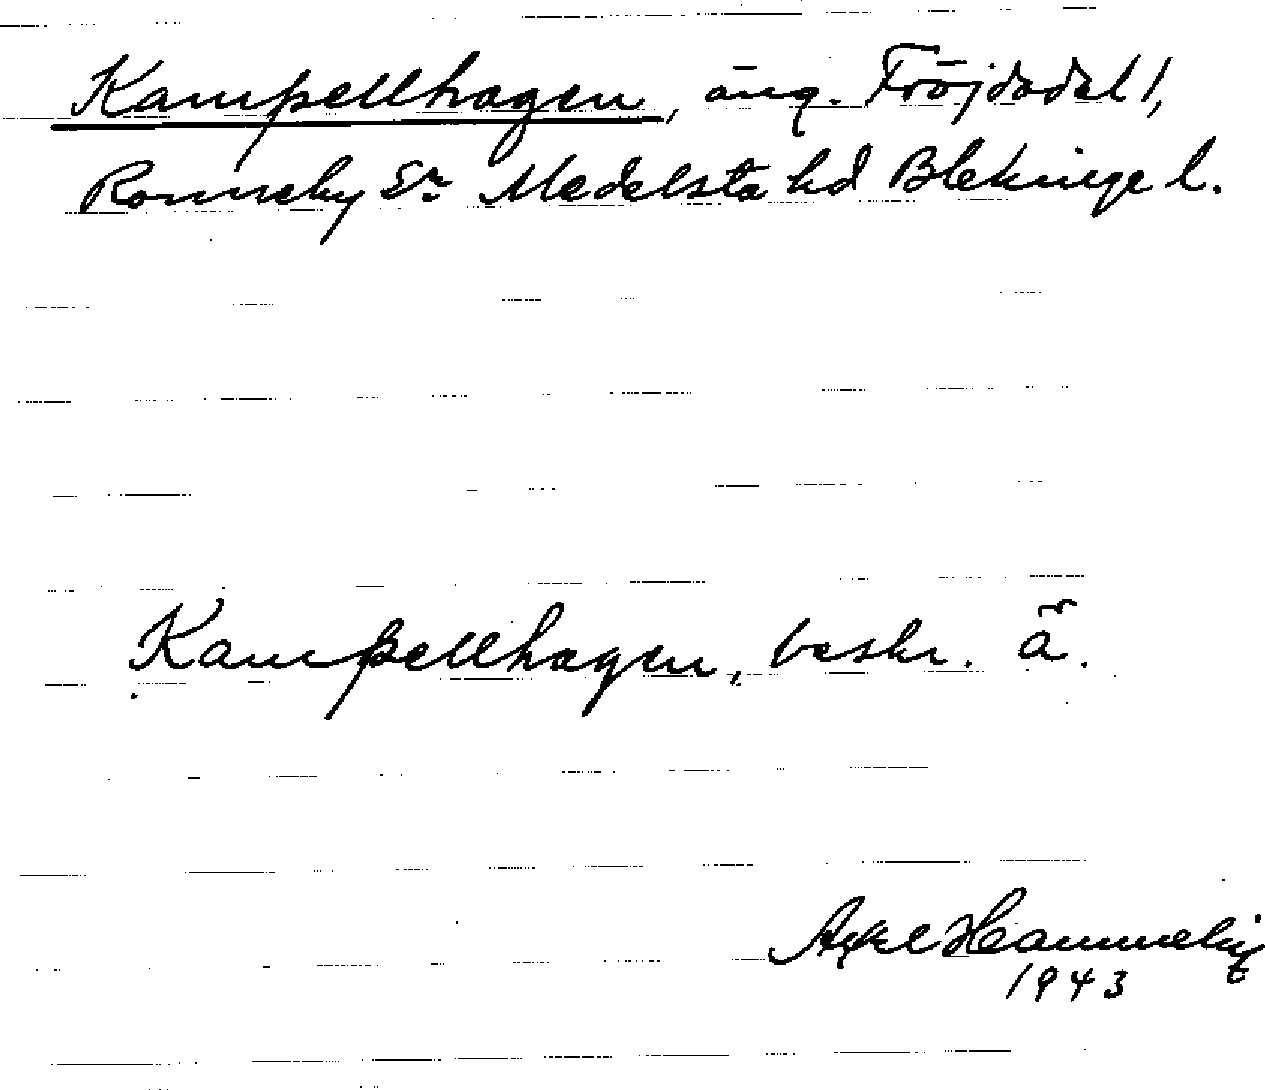 Kampellhagen, äng. Fröjdadal 1,
Ronneby Sn Medelsta hd Blekinge l.
Kampellhagen, beskr. ä.
Axel
1943